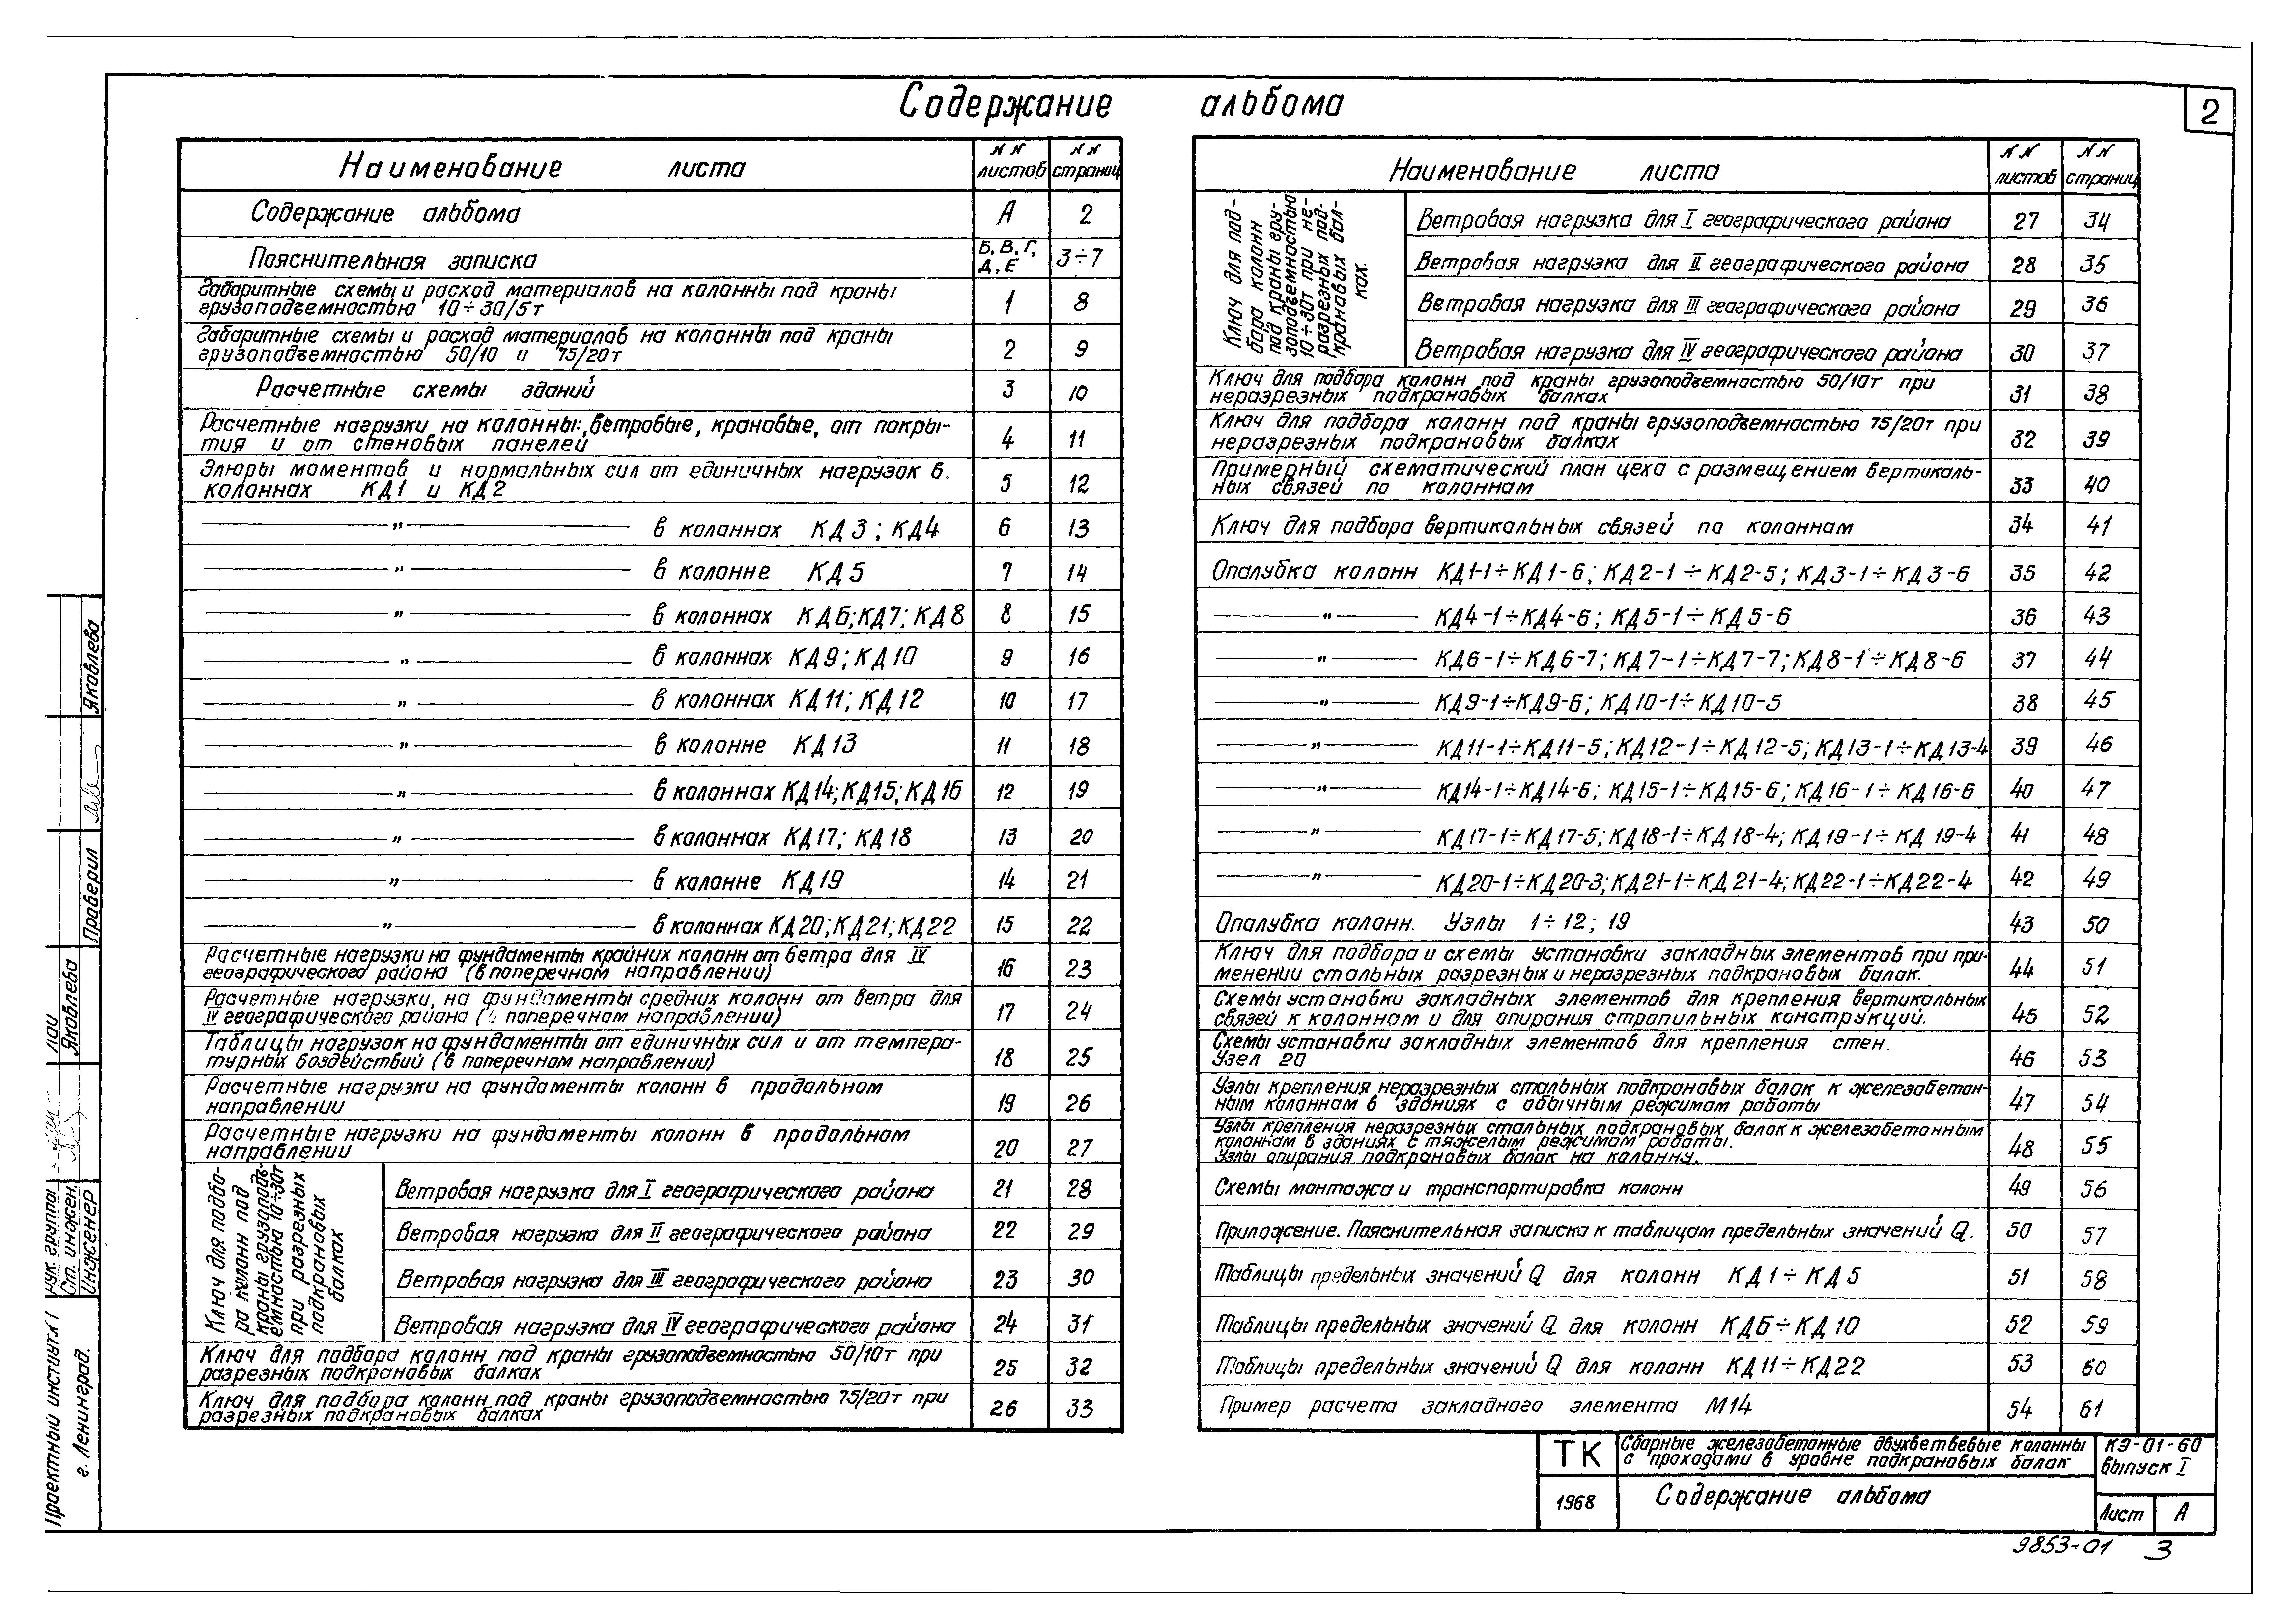 2
Содержание альбома
Наименование листа
NN листов
NN страниц
Содержание альбома А 2
Пояснительная записка Б, В, Г, Д, Е 3÷7
Габаритные схемы и расход материалов на колонны под краны
грузоподъемностью 10÷30/5т 1 8
Габаритные схемы и расход материалов на колонны под краны
грузоподъемностью 50/10 и 75/20т 2 9
Расчетные схемы зданий 3 10
Расчетные нагрузки на колонны: ветровые, крановые, от покры-
тия и от стеновых панелей 4 11
Эпюры моментов и нормальных сил от единичных нагрузок в
колоннах КД1 и КД2 5 12
" в колоннах КД3; КД4 6 13
" в колонне КД5 7 14
" в колоннах КД6; КД7; КД8 8 15
" в колоннах КД9; КД10 9 16
" в колоннах КД11; КД12 10 17
" в колонне КД13 11 18
" в колоннах КД14; КД15; КД16 12 19
" в колоннах КД17; КД18 13 20
" в колонне КД19 14 21
" в колоннах КД20; КД21; КД22 15 22
Расчетные нагрузки на фундаменты крайних колонн от ветра для IV
географического района (в поперечном направлении) 16 23
Расчетные нагрузки, на фундаменты средних колонн от ветра для
IV географического района (в поперечном направлении) 17 24
Таблицы нагрузок на фундаменты от единичных сил и от темпера-
турных воздействий (в поперечном направлении) 18 25
Расчетные нагрузки на фундаменты колонн в продольном
направлении 19 26
Расчетные нагрузки на фундаменты колонн в продольном
направлении 20 27
Ключ для подбо-
ра колонн под
краны грузоподъ-
емностью 10÷30т
при разрезных
подкрановых
балках
Ветровая нагрузка для I географического района 21 28
Ветровая нагрузка для II географического района 22 29
Ветровая нагрузка для III географического района 23 30
Ветровая нагрузка для IV географического района 24 31
Ключ для подбора колонн под краны грузоподъемностью 50/10т при
разрезных подкрановых балках 25 32
Ключ для подбора колонн под краны грузоподъемностью 75/20т при
разрезных подкрановых балках 26 33
Наименование листа
NN листов
NN страниц
Ключ для под-
бора колонн
под краны гру-
зоподъемностью
10÷30т при не-
разрезных под-
крановых бал-
ках.
Ветровая нагрузка для I географического района 27 34
Ветровая нагрузка для II географического района 28 35
Ветровая нагрузка для III географического района 29 36
Ветровая нагрузка для IV географического района 30 37
Ключ для подбора колонн под краны грузоподъемностью 50/10т при
неразрезных подкрановых балках 31 38
Ключ для подбора колонн под краны грузоподъемностью 75/20т при
неразрезных подкрановых балках 32 39
Примерный схематический план цеха с размещением вертикаль-
ных связей по колоннам 33 40
Ключ для подбора вертикальных связей по колоннам 34 41
Опалубка колонн КД1-1÷КД1-6; КД2-1÷КД2-5; КД3-1÷КД3-6 35 42
" КД4-1÷КД4-6; КД5-1÷КД5-6 36 43
" КД6-1÷КД6-7; КД7-1÷КД7-7; КД8-1÷КД8-6 37 44
" КД9-1÷КД9-6; КД10-1÷КД10-5 38 45
" КД11-1÷КД11-5; КД12-1÷КД12-5; КД13-1÷КД13-4 39 46
" КД14-1÷КД14-6; КД15-1÷КД15-6; КД16-1÷КД16-6 40 47
" КД17-1÷КД17-5; КД18-1÷КД18-4; КД19-1÷КД19-4 41 48
" КД20-1÷КД20-3; КД21-1÷КД21-4; КД22-1÷КД22-4 42 49
Опалубка колонн. Узлы 1÷12; 19 43 50
Ключ для подбора и схемы установки закладных элементов при при-
менении стальных разрезных и неразрезных подкрановых балок. 44 51
Схемы установки закладных элементов для крепления вертикальных
связей к колоннам и для опирания стропильных конструкций. 45 52
Схемы установки закладных элементов для крепления стен.
Узел 20 46 53
Узлы крепления неразрезных стальных подкрановых балок к железобетон-
ным колоннам в зданиях с обычным режимам работы 47 54
Узлы крепления неразрезных стальных подкрановых балок к железобетонным
колоннам в зданиях с тяжелым режимам работы.
Узлы опирания подкрановых балок на колонну. 48 55
Схемы монтажа и транспортировка колонн 49 56
Приложение. Пояснительная записка к таблицам предельных значений Q. 50 57
Таблицы предельных значений Q для колонн КД1÷КД5 51 58
Таблицы предельных значений Q для колонн КД6÷КД10 52 59
Таблицы предельных значений Q для колонн КД11÷КД22 53 60
Пример расчета закладного элемента М14 54 61
ТК
1968
Сборные железобетонные двухветвевые колонны
с проходами в уровне подкрановых балок
Содержание альбома
КЭ-01-60
выпуск I
Лист А
9853-01 3
Проектный институт N1
г. Ленинград.
Рук. группы
Ст. инжен.
Инженер
Яковлева
Проверил
Яковлева